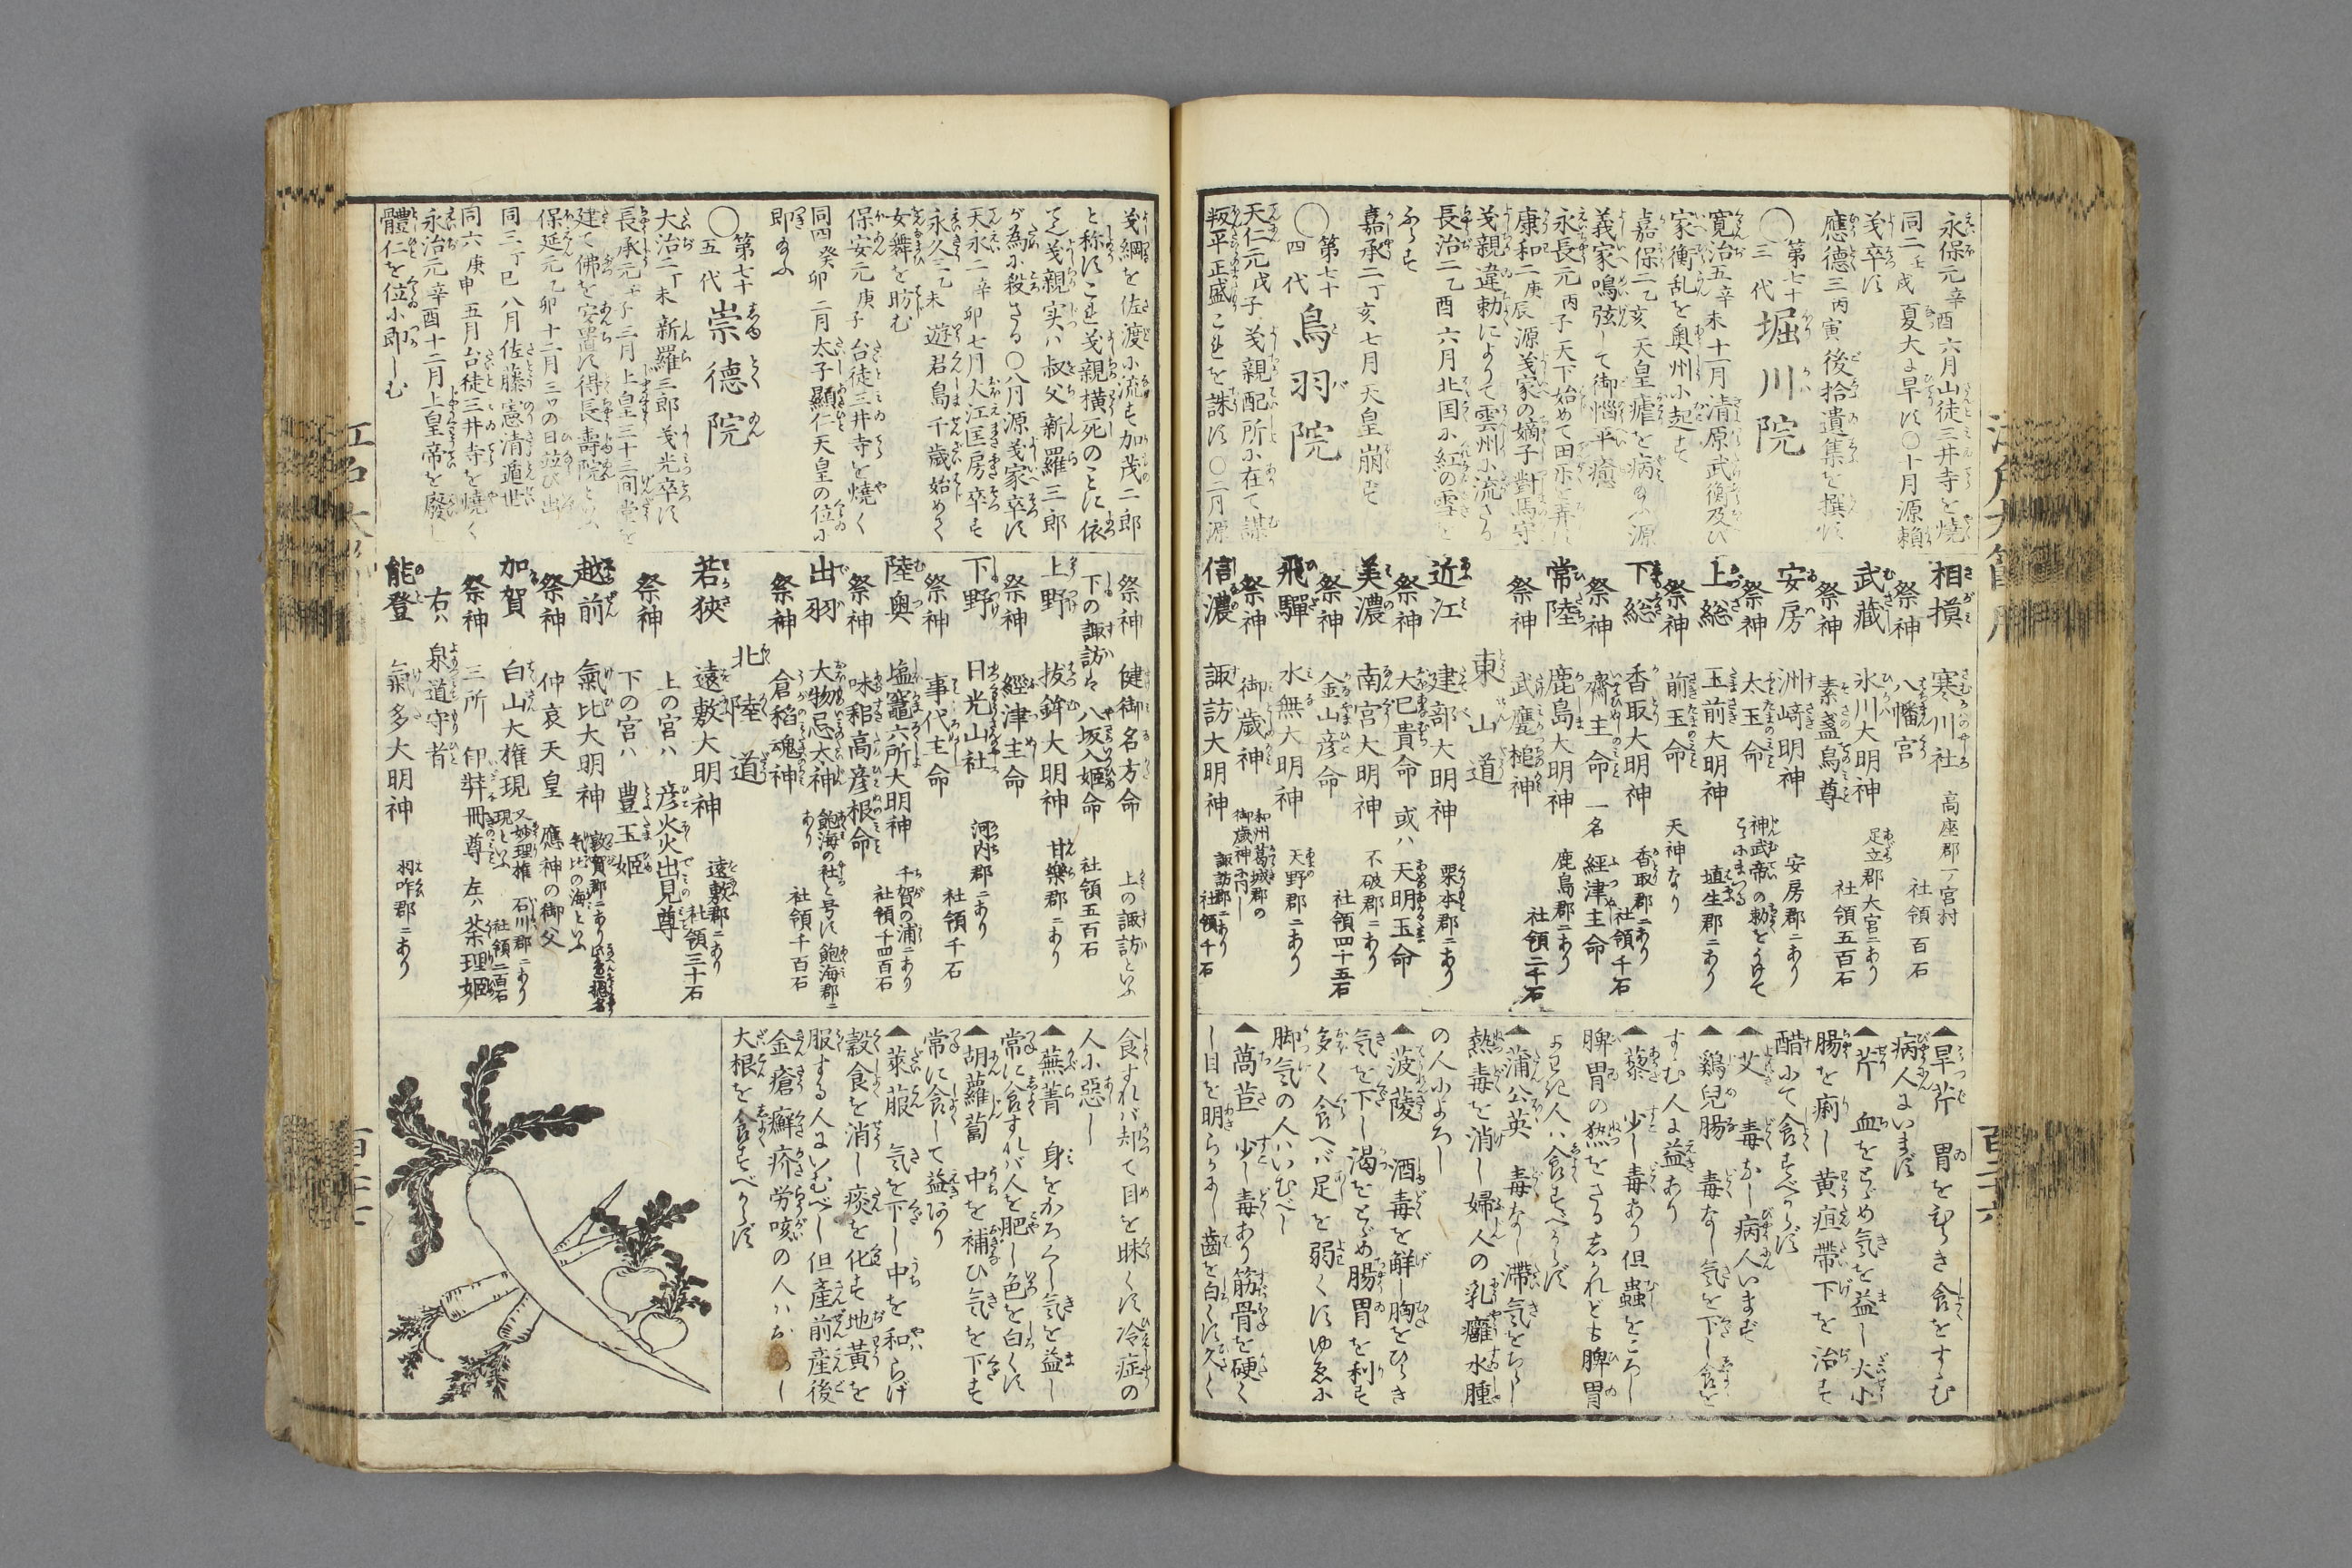 永保元辛酉六月山徒三井寺を焼
同二壬戌夏大に旱す〇十月源頼
義卒す
應德三丙寅後拾遺集を撰す
〇第七十三代 堀川院
寛治五辛未十一月清原武衡及び
家衡乱を奥州に起す
嘉保二乙亥天皇瘧を病給ふ源
義家鳴弦して御悩平癒
永長元丙子天下始めて田樂を弄す
康和二庚辰源義家の嫡子對馬守
義親違勅によりて雲州に流さる
長治二乙酉六月北国に紅の雪を
ふらす
嘉承二丁亥七月天皇崩ず
〇第七十四代 鳥羽院
天仁元戊子義親配所に在て謀
叛平正盛これを誅す〇二月源
相摸 寒川社 高座郡一ノ宮村
祭神 八幡宮 社領百石
武藏 氷川大明神 足立郡大宮ニあり
祭神 素盞烏尊 社領五百石
安房 洲﨑明神 安房郡ニあり
祭神 太玉命 神武帝の勅をうけて
上総 玉前大明神 埴生郡ニあり
祭神 前玉命 天神なり
下総 香取大明神 香取郡ニあり 社領千石
祭神 齋主命 一名 經津主命
常陸 鹿島大明神 鹿島郡ニあり
祭神 武甕槌神 社領二千石
東山道
近江 建部大明神 栗本郡ニあり
祭神 大巳貴命 或ハ 天明玉命
美濃 南宮大明神 不破郡ニあり
祭神 金山彦命 社領四十五石
飛驒 水無大明神 天野郡ニあり
祭神 御歳神 和州葛城郡の御歳神ニ同じ
信濃 諏訪大明神 諏訪郡ニあり 社領千石
▲旱芹 胃をひらき食をすゝむ
病人にいまず
▲芹 血をとゞめ気を益し大小
腸を痢し黄疸帯下を治す
醋にて食すべからず
▲艾 毒なし病人いまず
▲鷄兒腸 毒なし気を下し食を
すゝむ人に益あり
▲藜 少し毒あり但蟲をころし
脾胃の熱をさる志かれども脾胃
よわき人ハ食すべからず
▲蒲公英 毒なし滞気をちらし
熱毒を消し婦人の乳癰水腫
の人によろし
▲菠薐 酒毒を觧し胸をひらき
気を下し渇をとゞめ腸胃を利す
多く食へバ足を弱くすゆゑに
脚気の人ハいむべし
▲萵苣 少し毒あり筋骨を硬く
し目を明らかにし齒を白くす久く
百二十六
義綱を佐渡に流す加茂二郎
と称すこれ義親横死のことに依
て也義親実ハ叔父新羅三郎
が為に殺さる〇八月源義家卒す
天永二辛卯七月大江匡房卒す
永久三乙未遊君島千歳始めて
女舞を舫む
保安元庚子台徒三井寺を燒く
同四癸卯二月太子顯仁天皇の位に
即給ふ
〇第七十五代 崇德院
大治二丁未新羅三郎義光卒す
長承元壬子三月上皇三十三间堂を
建て佛を安置す得長壽院といふ
保延元乙卯十二月三ツの日並び出
同三丁巳八月佐藤憲清遁世
同六庚申五月台徒三井寺を燒く
永治元辛酉十二月上皇帝を廢し
體仁を位に即しむ
祭神 健御名方命 上の諏訪といふ
下の諏訪ハ 八坂入姫命 社領五百石
上野 拔鉾大明神 甘樂郡ニあり
祭神 經津主命
下野 日光山社 河内郡ニあり
祭神 事代主命 社領千石
陸奥 塩竈六所大明神 千賀の浦ニあり
祭神 味耜高彦根命 社領千四百石
出羽 大物忌太神 飽海の社と号す 飽海郡ニあり
祭神 倉稻魂神 社領千百石
北陸道
若狹 遠敷大明神 遠敷郡ニあり
上の宮ハ 彦火火出見尊 社領三十石
祭神 下の宮ハ 豊玉姫
越前 氣比大明神 敦賀郡ニあり 気比の海といふ
祭神 仲哀天皇 應神の御父
加賀 白山大権現 又妙理権現といふ 石川郡ニあり 社領二百石
祭神 三所 伊弉冊尊 左ハ 荼理姫
右ハ 泉道守者
能登 氣多大明神 羽咋郡ニあり
食すれバ却て目を昧くす冷症の
人に惡し
▲蕪菁 身をかろくし気を益し
常に食すれバ人を肥し色を白くす
▲胡蘿蔔 中を補ひ気を下す
常に食して益あり
▲萊菔 気を下し中を和らげ
穀食を消し痰を化す地黄を
服する人にいむべし但産前産後
金瘡癬疥労咳の人ハ
大根を食すべからず